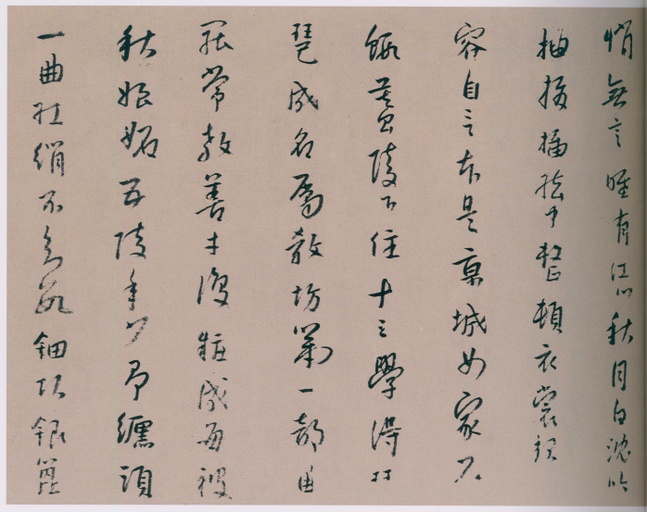 悄無言唯有江心秋月白沈吟
抽撥插絃中整頓衣裳起
容自言本是京城女家在
蝦蟇陵下住十三學得琵
琶成名屬教坊第一部曲
罷常教善才服粧成每被
秋娘妬五陵年少爭纏頭
一曲紅綃不知數鈿頭銀篦